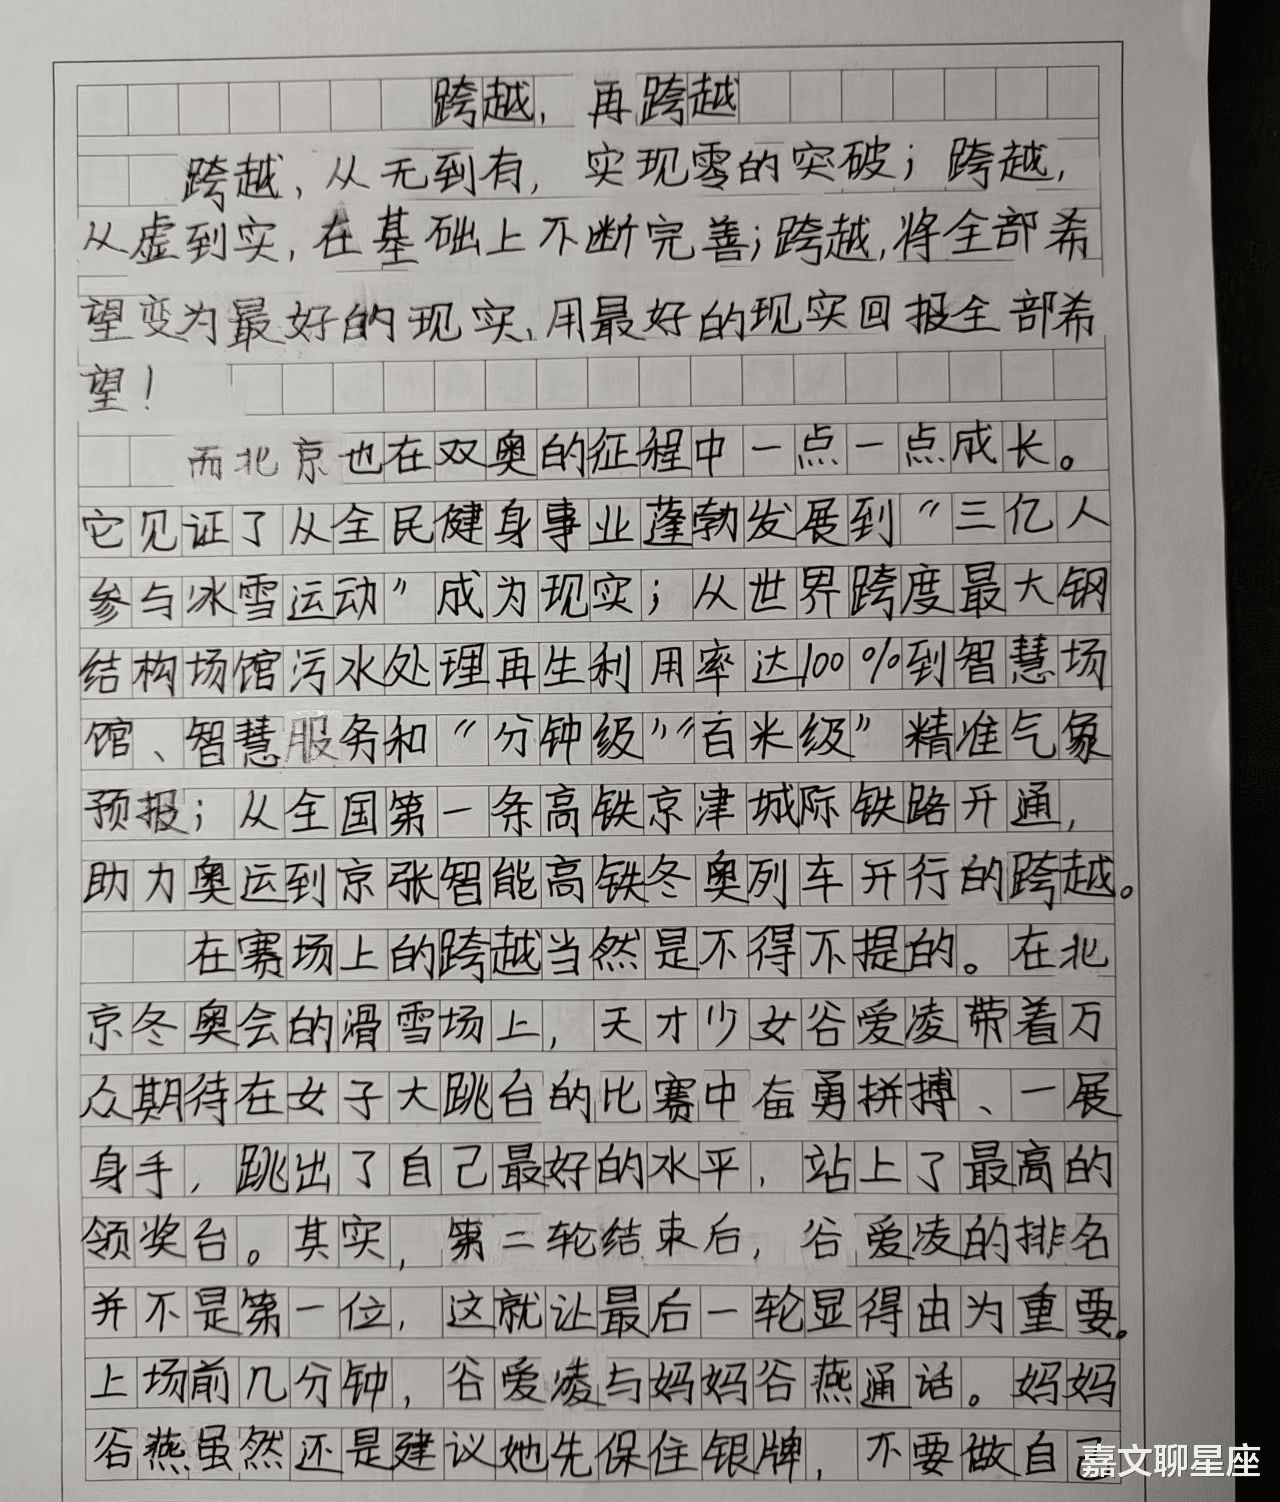 跨越，再跨越
跨越，从无到有，实现零的突破；跨越，
从虚到实，在基础上不断完善；跨越，将全部希
望变为最好的现实、用最好的现实回报全部希
望！
而北京也在双奥的征程中一点一点成长。
它见证了从全民健身事业蓬勃发展到“三亿人
参与冰雪运动”成为现实；从世界跨度最大钢
结构场馆污水处理再生利用率达100%到智慧场
馆、智慧服务和“分钟级”“百米级”精准气象
预报；从全国第一条高铁京津城际铁路开通，
助力奥运到京张智能高铁冬奥列车开行的跨越。
在赛场上的跨越当然是不得不提的。在北
京冬奥会的滑雪场上，天才少女谷爱凌带着万
众期待在女子大跳台的比赛中奋勇拼搏、一展
身手，跳出了自己最好的水平，站上了最高的
领奖台。其实，第二轮结束后，谷爱凌的排名
并不是第一位，这就让最后一轮显得由为重要。
上场前几分钟，谷爱凌与妈妈谷燕通话。妈妈
谷燕虽然还是建议她先保住银牌，不要做自己
嘉文聊星座